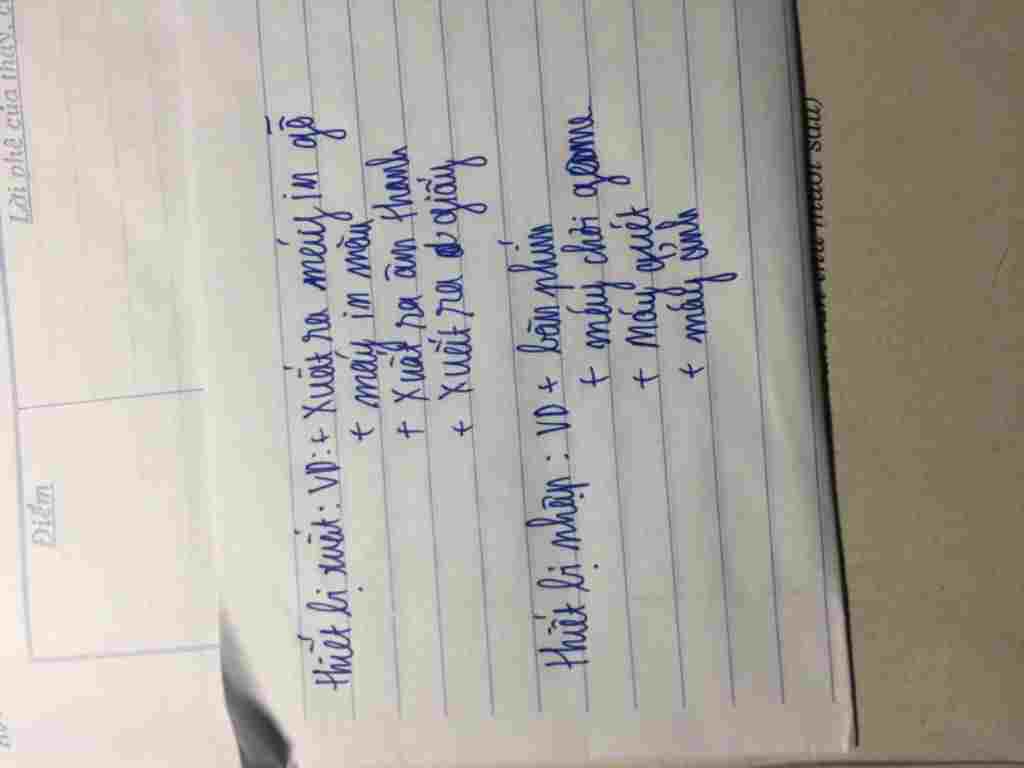 Lời phê của thầy,
Điểm
thiết bị xuất: VD: + Xuất ra máy in gõ
+ máy in màu
+ Xuất ra âm thanh
+ Xuất ra giấy
thiết bị nhập: VD + bàn phím
+ máy chơi game
+ Máy quét
+ máy ảnh